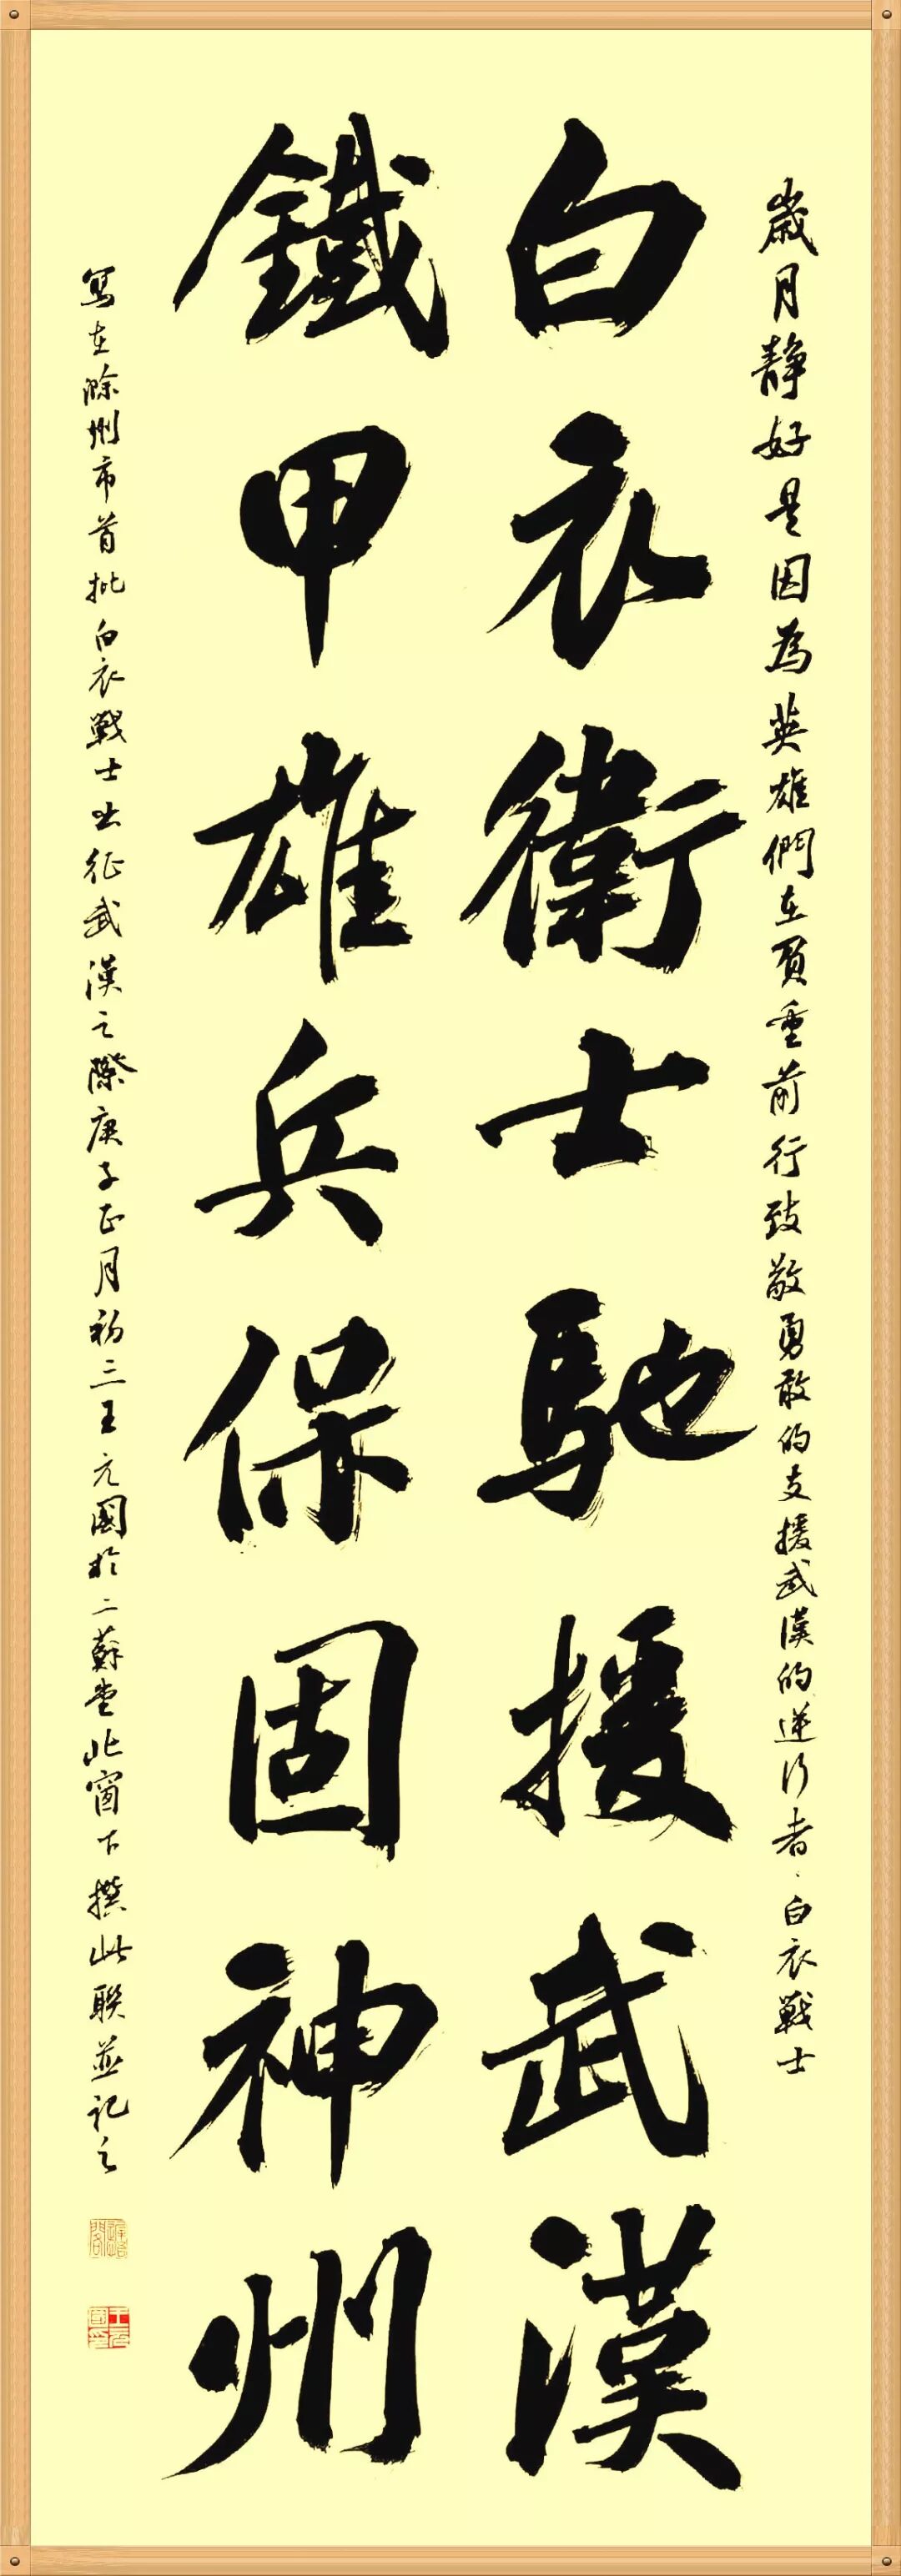 歲月静好是因為英雄們在負重前行致敬勇敢的支援武漢的逆行者、白衣戰士
白衣衛士馳援武漢
鐵甲雄兵保固神州
寫在滁州市首批白衣戰士出征武漢之際庚子正月初三王元國於二蘇堂北窗下撰此聯並記之